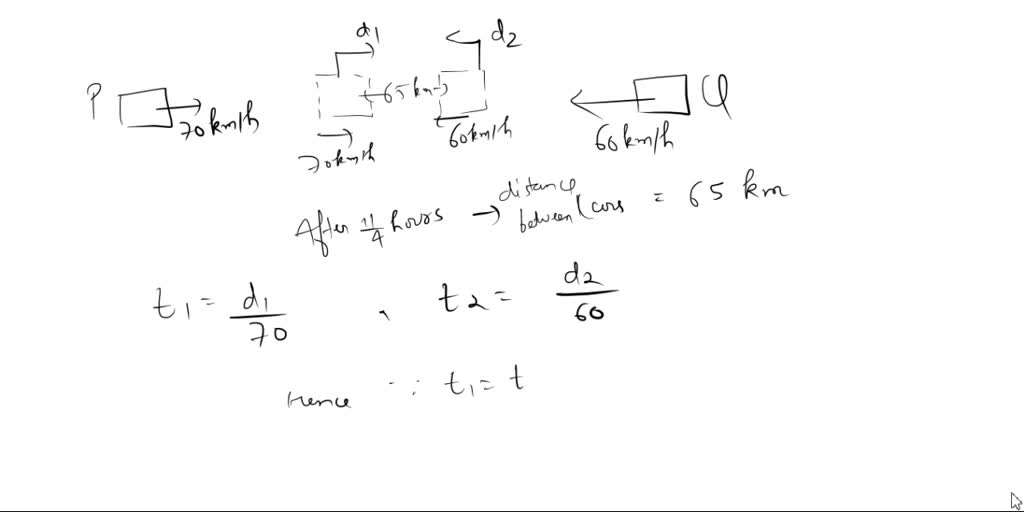 d1 d2
P 70 km/h 65 km 60 km/h 60 km/h Q
70 km/h
After 11/4 hours → distance between cars = 65 km
t1 = d1/70 , t2 = d2/60
Hence ∵ t1 = t